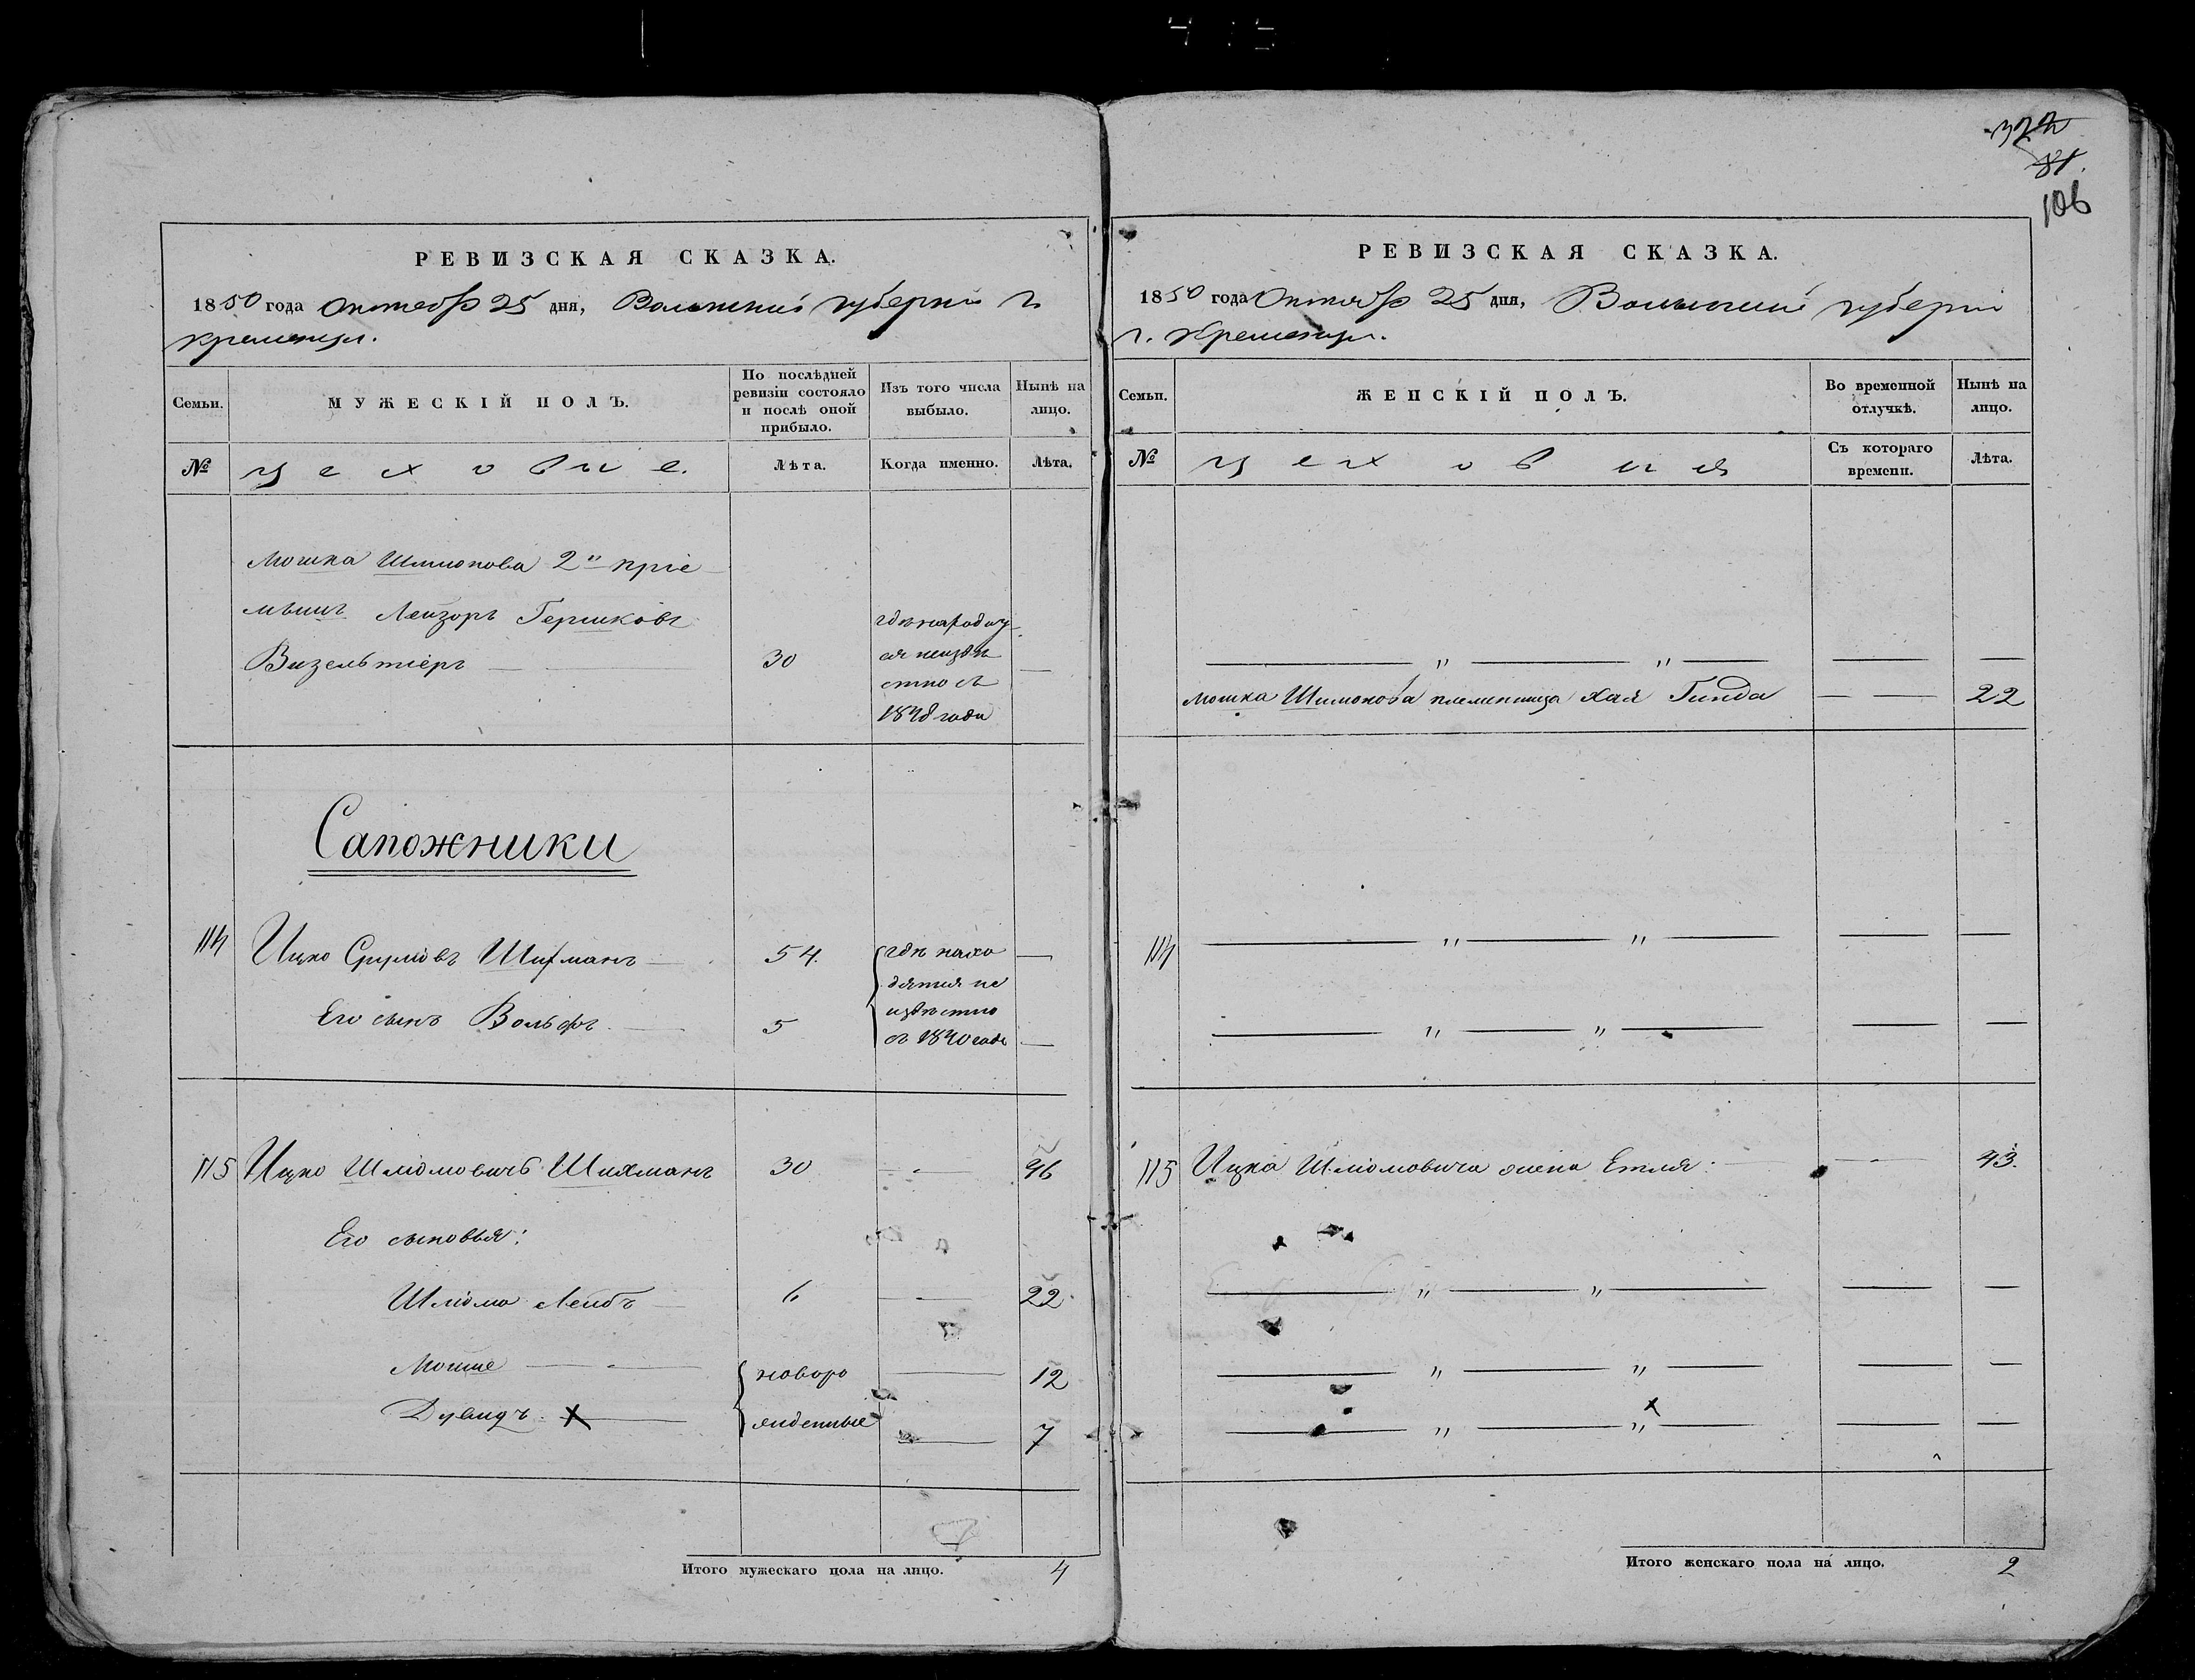 322
81.
106
РЕВИЗСКАЯ СКАЗКА.
1850 года Октября 25 дня, Волынской губерніи г.
Кременца.
Семьи.
МУЖЕСКІЙ ПОЛЪ.
По послѣдней
ревизіи состояло
и послѣ оной
прибыло.
Изъ того числа
выбыло.
Нынѣ на
лицо.
№
цеховые.
Лѣта.
Когда именно.
Лѣта.
Мошка Шимонова 2й пріе
мышъ Лейзоръ Гершковъ
Визельтіеръ 30
гдѣ находит
ся неизвѣ
стно съ
1848 года
Сапожники
114 Ицко Сруліовъ Шифманъ 54.
Его сынъ Вольфъ 5
гдѣ нахо
дятся не
извѣстно
съ 1840 года
115 Ицко Шліомовичъ Шихманъ 30 46
Его сыновья:
Шліома Лейбъ 6 22
Мошке 12
Дувидъ. X 7
новоро
жденные
Итого мужескаго пола на лицо. 4
РЕВИЗСКАЯ СКАЗКА.
1850 года Октября 25 дня, Волынской губерніи
г. Кременца.
Семьи.
ЖЕНСКІЙ ПОЛЪ.
Во временной
отлучкѣ.
Нынѣ на
лицо.
№
цеховыя
Съ котораго
времени.
Лѣта.
Мошка Шимонова племянница Хая Гинда 22
114
115 Ицка Шліомовича жена Етля: 43.
X
Итого женскаго пола на лицо. 2